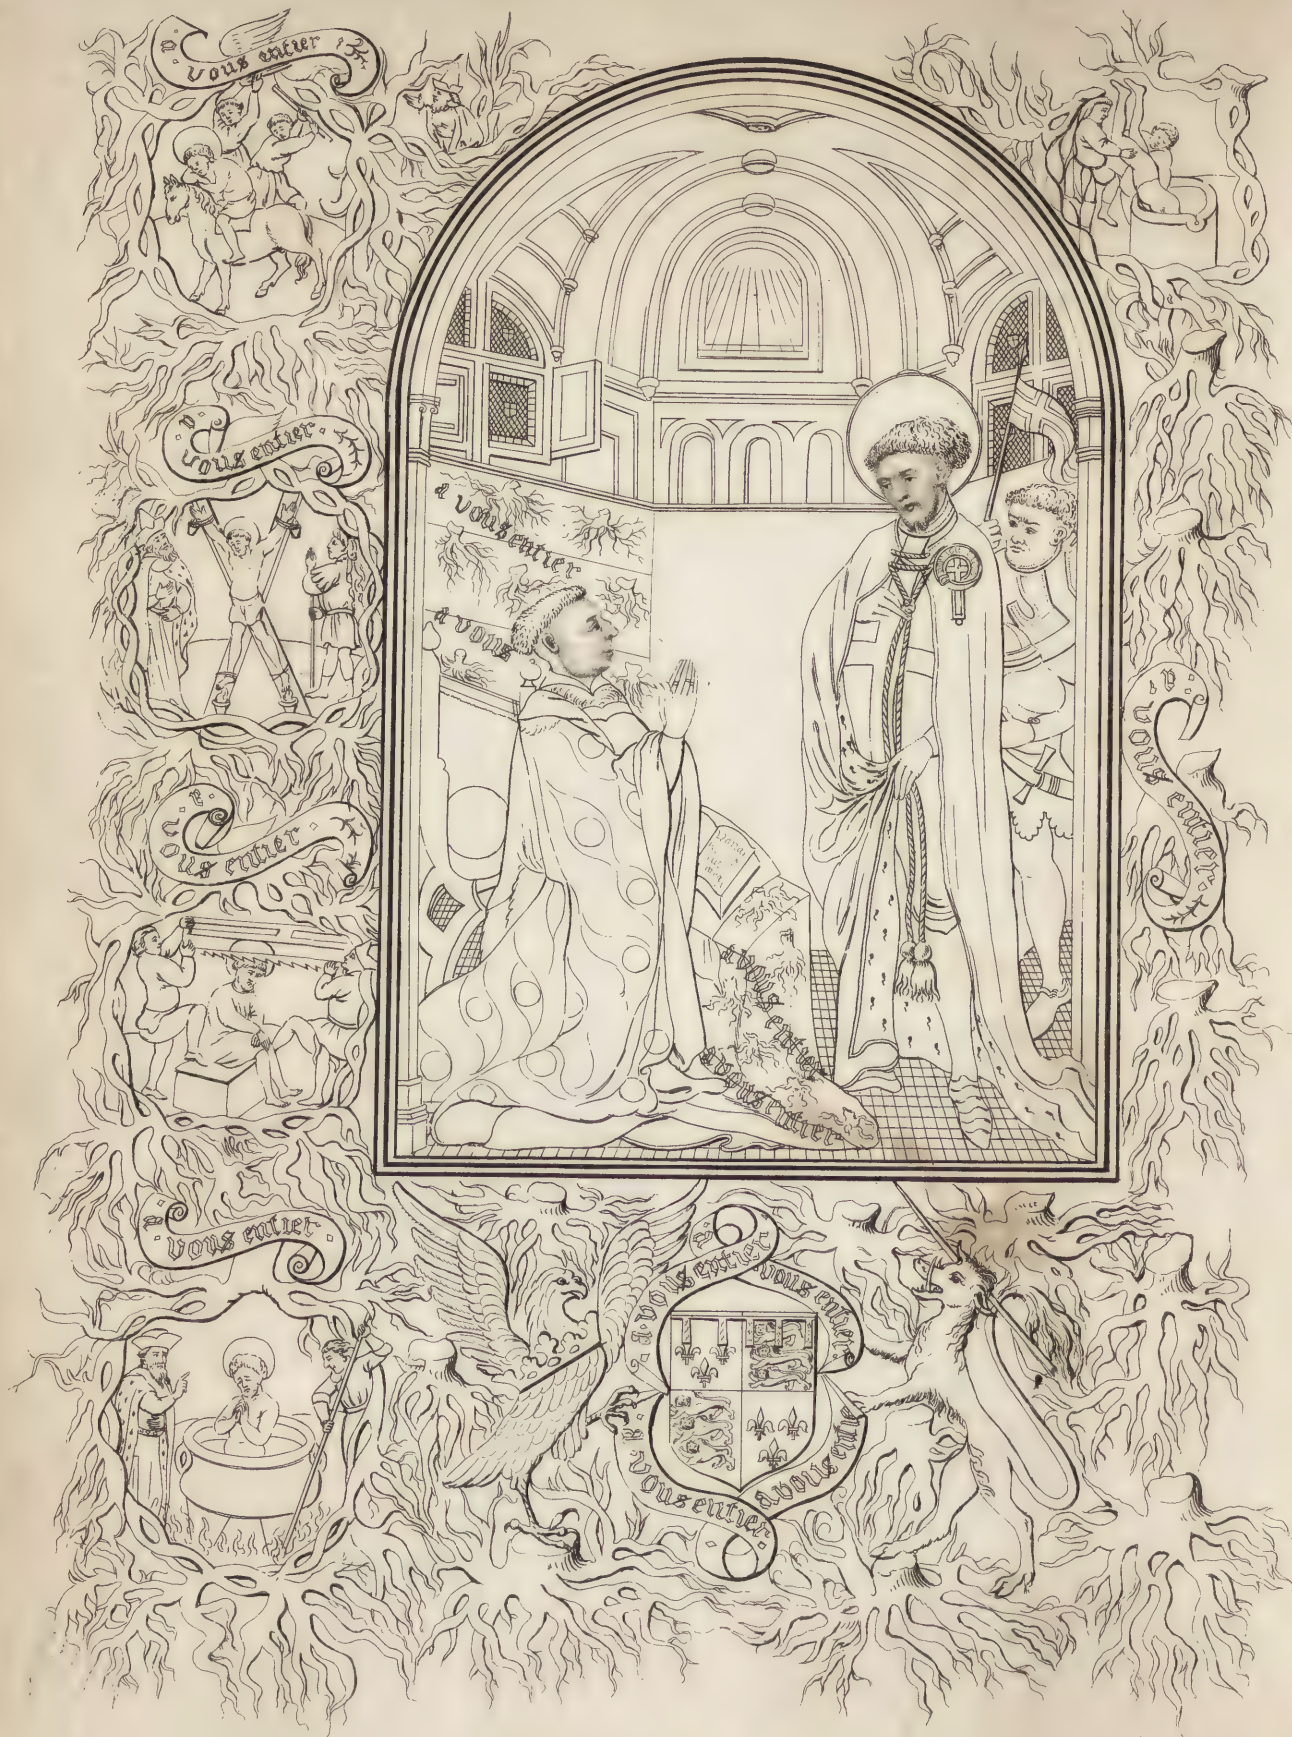 vous entier
vous entier
a vous entier
a vous
vous entier
a vous entier
a vous entier
vous entier
vous entier
vous entier
vous entier
vous entier
a vous entier